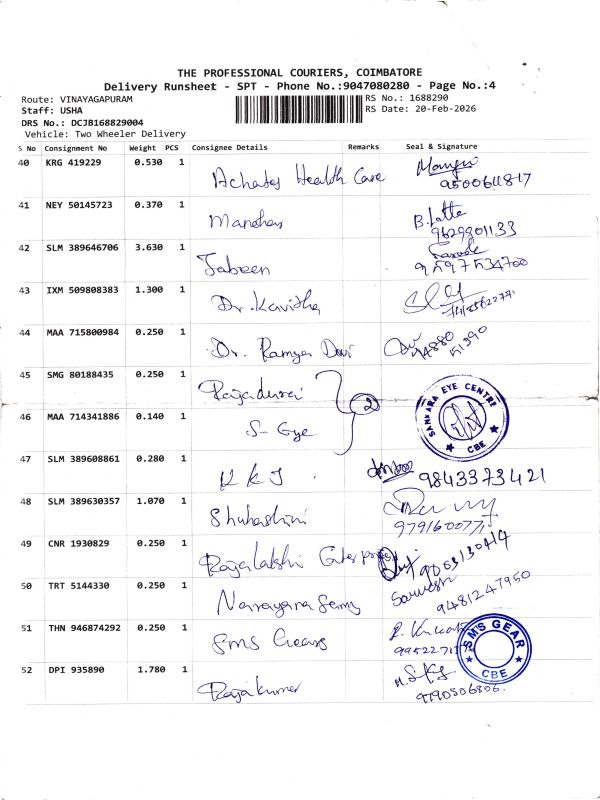 THE PROFESSIONAL COURIERS, COIMBATORE
Delivery Runsheet - SPT - Phone No.:9047080280 - Page No.:4
Route: VINAYAGAPURAM RS No.: 1688290
Staff: USHA RS Date: 20-Feb-2026
DRS No.: DCJB168829004
Vehicle: Two Wheeler Delivery
S No Consignment No Weight PCS Consignee Details Remarks Seal & Signature
40 KRG 419229 0.530 1 Achates Health Care
9500611817
41 NEY 50145723 0.370 1 Manohar B. Latha
9629801133
42 SLM 389646706 3.630 1 Jabeen
9597534700
43 IXM 509808383 1.300 1 Dr. Kavitha
44 MAA 715800984 0.250 1 Dr. Ramya Devi
94880 51390
45 SMG 80188435 0.250 1 Rajadurai
2
SANKARA EYE CENTRE CBE
46 MAA 714341886 0.140 1 S- Eye
47 SLM 389608861 0.280 1 K K J
9843373421
48 SLM 389630357 1.070 1 Shubashini
9791600775
49 CNR 1930829 0.250 1 Rajalakshi Enterprises 9063130414
50 TRT 5144330 0.250 1 Narayana Samy Sarvesh
9481247950
51 THN 946874292 0.250 1 SMS Gears
SMS GEAR CBE
52 DPI 935890 1.780 1 Rajakumar
9790506806.